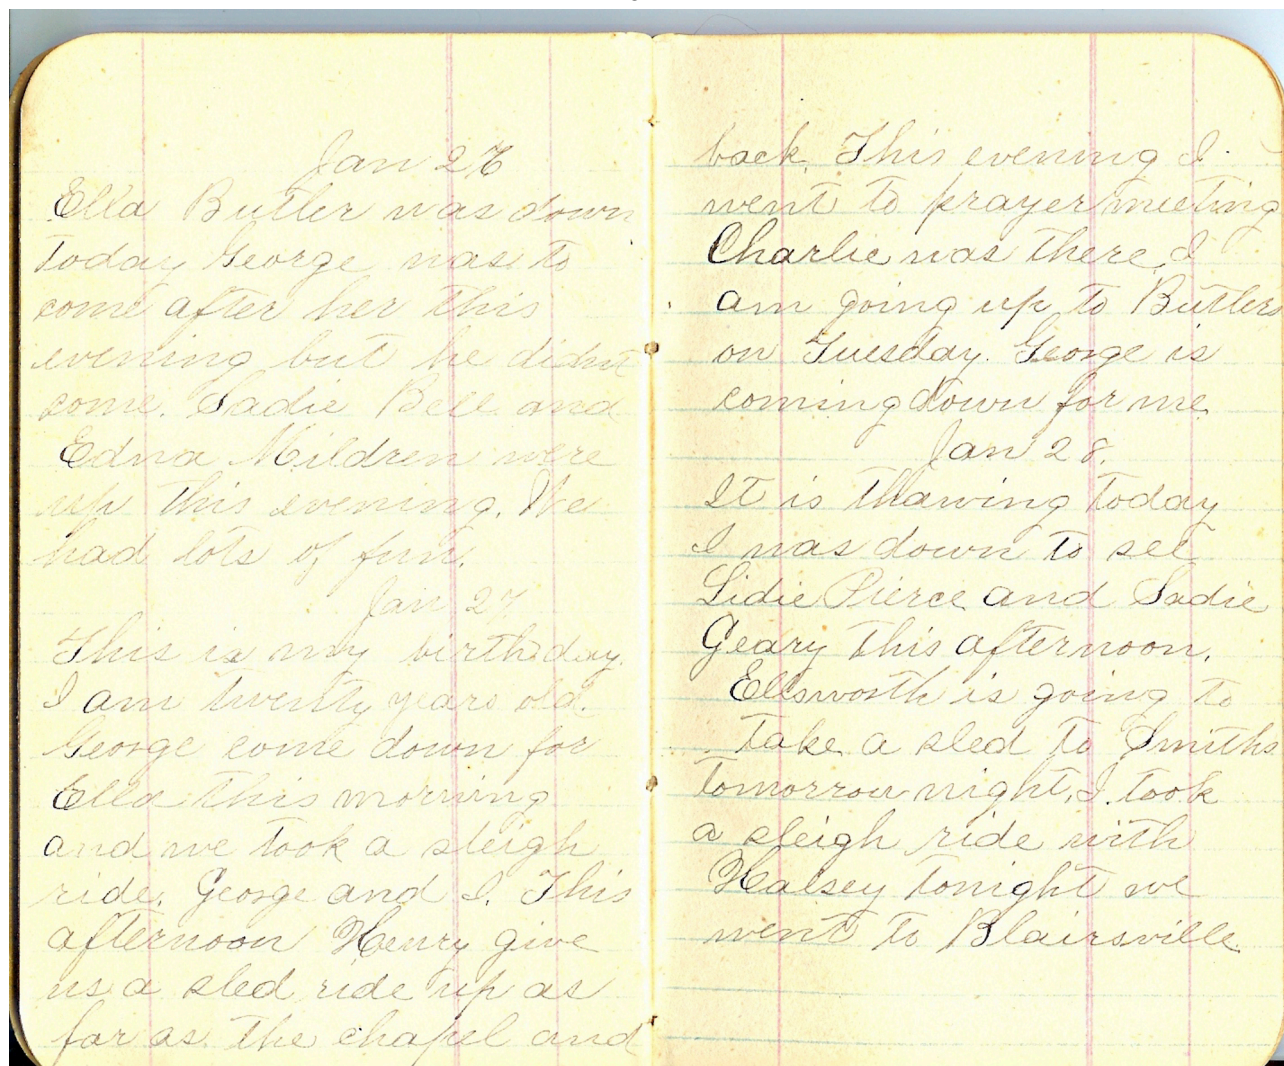 Jan 26
Ella Butler was down
today George was to
come after her this
evening but he didnt
come. Sadie Bell and
Edna Mildren were
up this evening. We
had lots of fun.
Jan 27
This is my birthday.
I am twenty years old.
George come down for
Ella this morning
and we took a sleigh
ride. George and I. This
afternoon Henry give
us a sled ride up as
far as the chapel and
back. This evening I
went to prayer meeting
Charlie was there I
am going up to Butlers
on Tuesday. George is
coming down for me
Jan 28.
It is thawing today
I was down to see
Lidie Pierce and Sadie
Geary this afternoon.
Ellsworth is going to
take a sled to Smiths
tomorrow night. I took
a sleigh ride with
Halsey tonight we
went to Blairsville